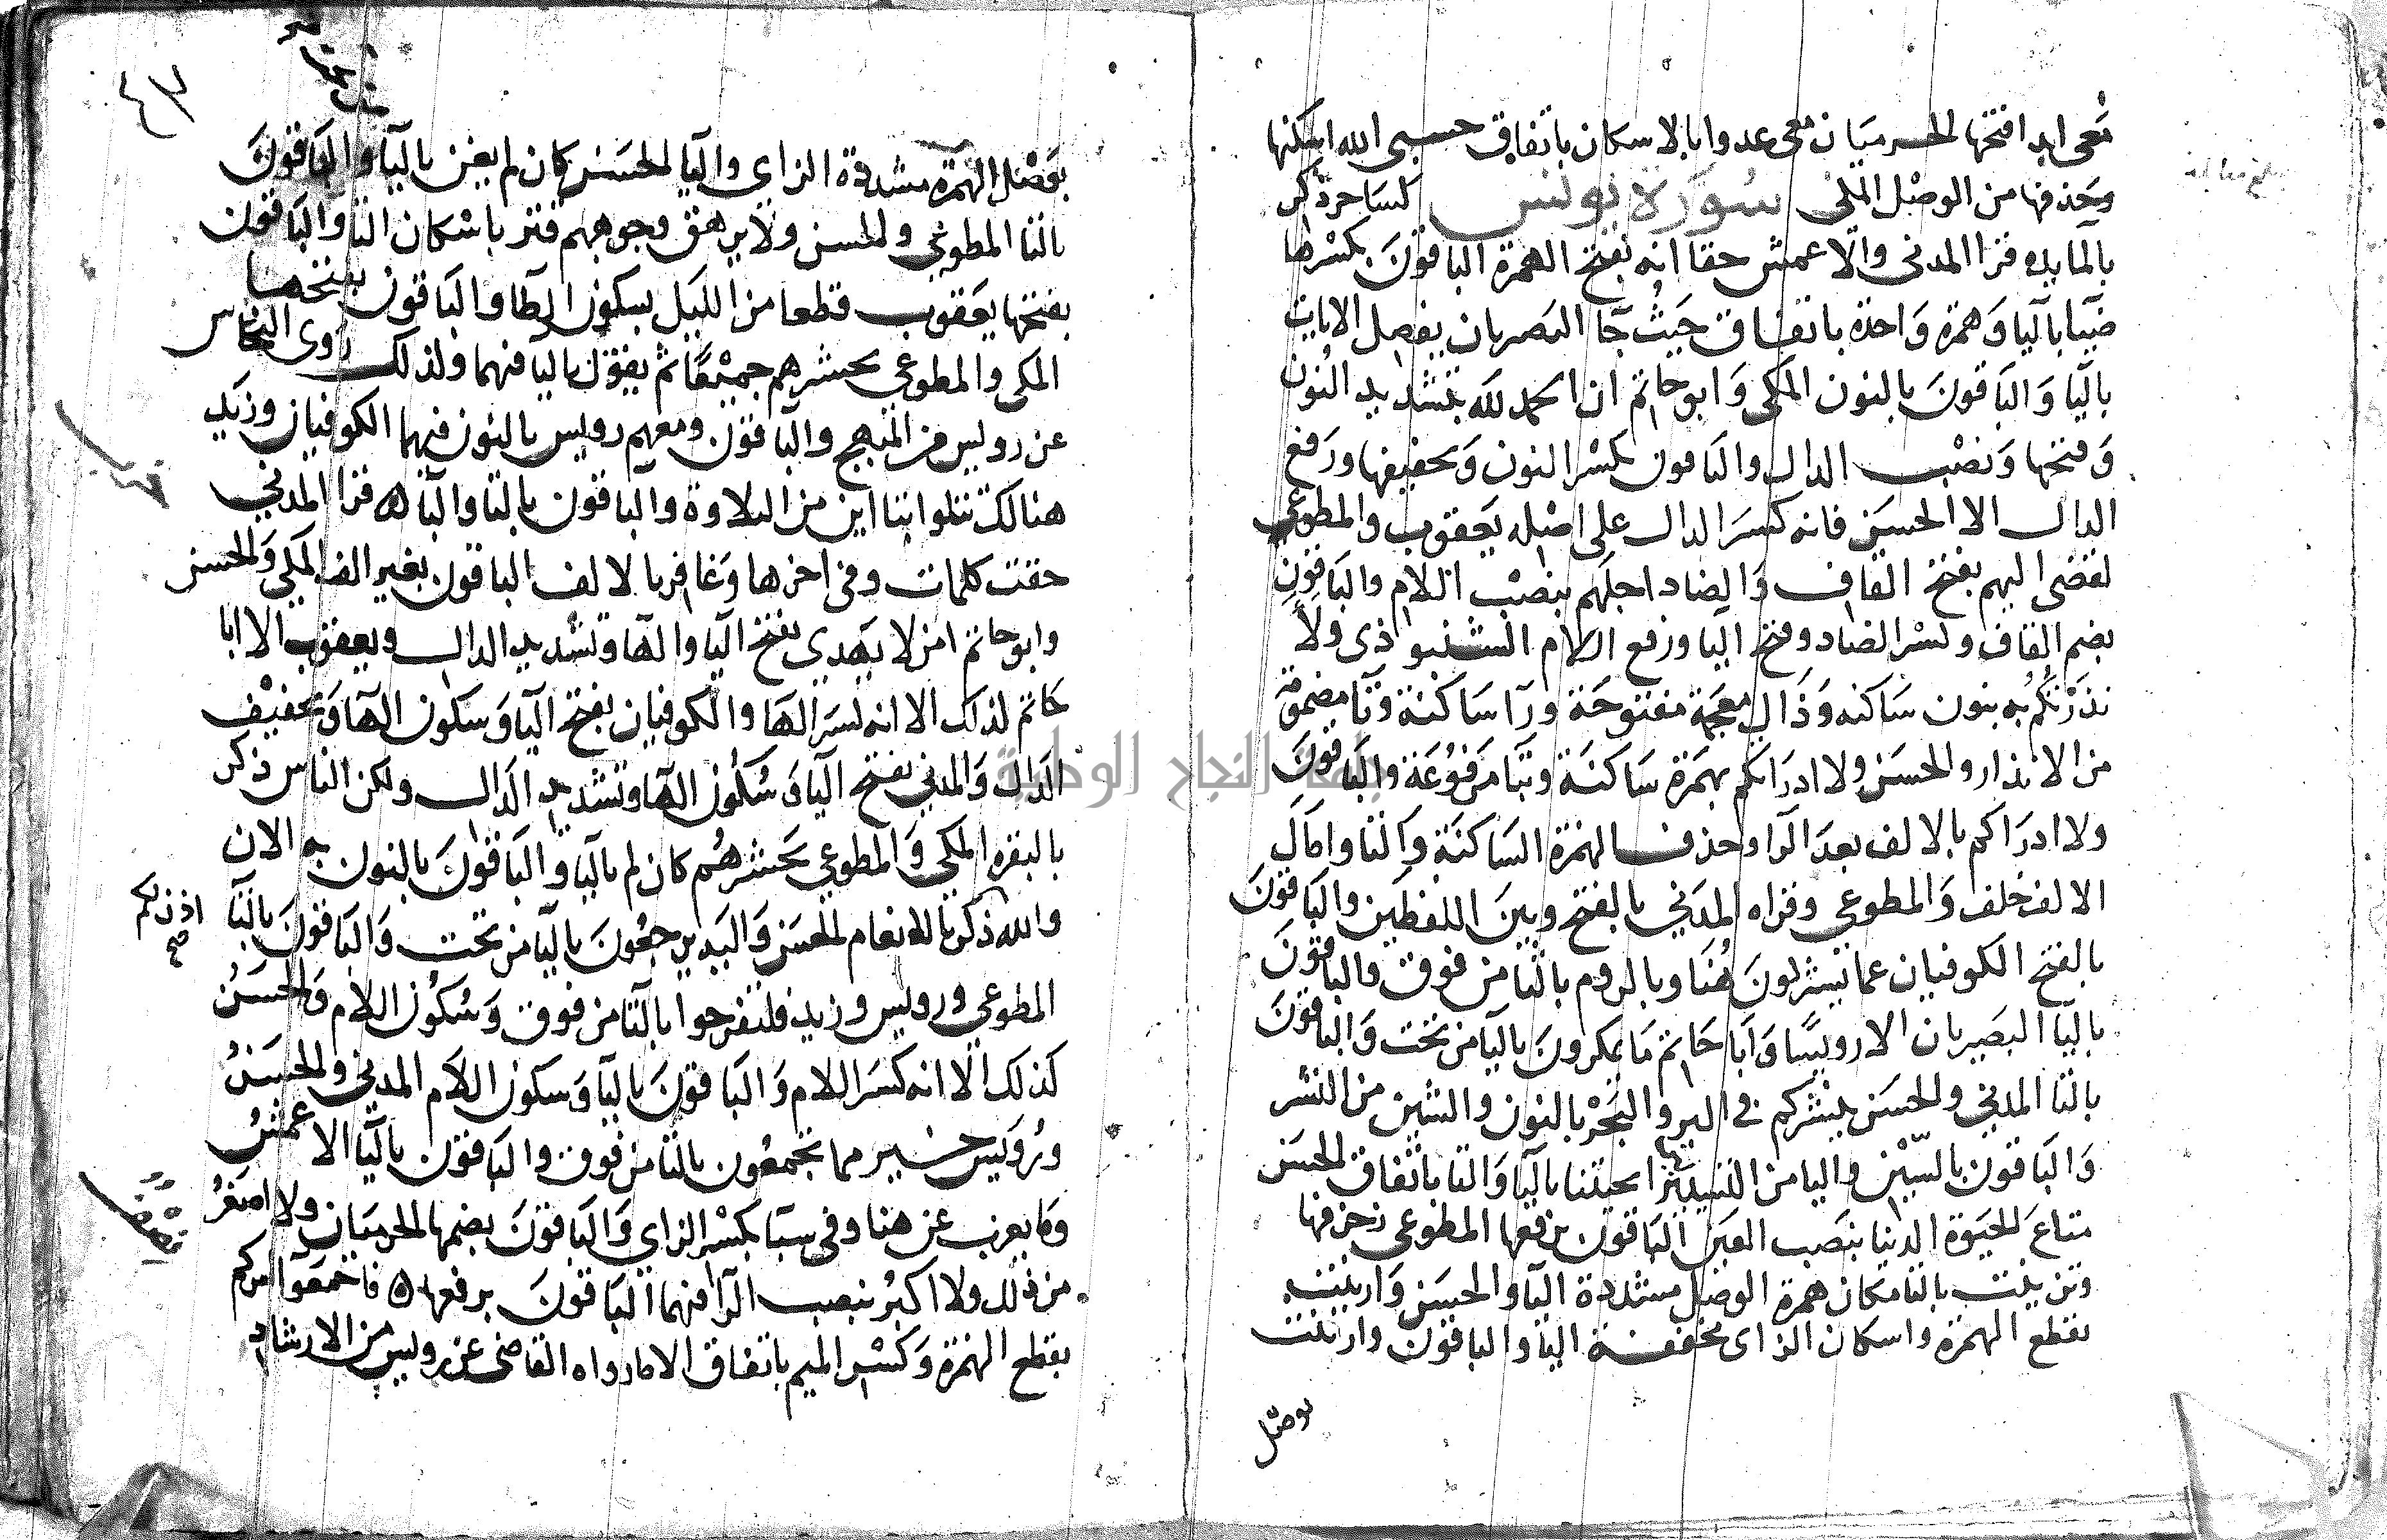 معى ابدا فتحها الحرميان معى عدوا بالاسكان باتفاق حسبى الله اسكنها
وحذفها من الوصل المكى سورة يونس كساحر ذكر
بالمايده قرا المدنى والاعمش حقا انه بفتح الهمزة الباقون بكسرها
ضيا باليا وهمزة واحدة باتفاق حيث جا البصريان يفصل الايات
باليا والباقون بالنون المكى وابو حاتم ان الحمد لله بتشديد النون
وفتحها ونصب الدال والباقون بكسر النون وتخفيفها ورفع
الدال الا الحسن فانه كسر الدال على اصله يعقوب والمطوعى
لقضى اليهم بفتح القاف والضاد اجلهم بنصب اللام والباقون
بضم القاف وكسر الضاد وفتح اليا ورفع اللام الشنبوذى ولا
نذرتكم به بنون ساكنه وذال معجمة مفتوحة ورا ساكنة وتا مضمومة
من الانذار والحسن ولا ادراتكم بهمزة ساكنة وتا مرفوعة والباقون
ولا ادراكم بالالف بعد الرا وحذف الهمزة الساكنة والتا وامال
الالف خلف والمطوعى وقراه المدنى بالفتح وبين اللفظين والباقون
بالفتح الكوفيان عما تشركون هنا وبالروم بالتا من فوق والباقون
باليا البصريان الا رويسا وابا حاتم ما يمكرون باليا من تحت والباقون
بالتا المدنى والحسن ينشركم فى البر والبحر بالنون والشين من النشر
والباقون بالسين واليا من التسيير انجيتنا باليا والتا باتفاق الحسن
متاع الحيوة الدنيا بنصب العين الباقون برفعها المطوعى زخرفها
وتزينت بالتا مكان همزة الوصل مشددة اليا والحسن وازينت
بقطع الهمزة واسكان الزاى مخففة اليا والباقون وازينت
بوصل
٤٧
بوصل الهمزة مشددة الزاى واليا الحسن كان لم يغن باليا والباقون
بالتا المطوعى والحسن ولا يرهق وجوههم قتر باسكان التا والباقون
بفتحها يعقوب قطعا من الليل بسكون الطا والباقون بفتحها
المكى والمطوعى يحشرهم جميعا ثم يقول باليا فيهما وكذلك روى النخاس
عن رويس من المبهج والباقون ومعهم رويس بالنون فيهما الكوفيان وزيد
هنالك تتلوا بتااين من التلاوة والباقون بالتا والبا ه قرا المدنى
حقت كلمات وفى اخرها وغافر بالالف الباقون بغير الف المكى والحسن
وابو حاتم امن لا يهدى بفتح اليا والها وتشديد الدال ويعقوب الا ابا
حاتم كذلك الا انه كسر الها والكوفيان بفتح اليا وسكون الها وتخفيف
الدال والمدنى بفتح اليا وسكون الها وتشديد الدال ولكن الناس ذكر
بالبقره المكى والمطوعى يحشرهم كان لم باليا والباقون بالنون به الان
والله ذكر بالانعام الحسن واليه يرجعون باليا من تحت والباقون بالتا
اذن لكم
صح
المطوعى ورويس وزيد فلتفرحوا بالتا من فوق وسكون اللام والحسن
كذلك الا انه كسر اللام والباقون باليا وسكون اللام المدنى والحسن
ورويس خير مما تجمعون بالتا من فوق والباقون باليا الاعمش
وما يعزب عن هنا وفى سبا بكسر الزاى والباقون بضمها الحرميان ولا اصغر
من ذلك ولا اكبر بنصب الرا فيهما الباقون برفعها ه فاجمعوا امركم
بقطع الهمزة وكسر الميم باتفاق الا ما رواه القاضى عن رويس من الارشاد
جامعة النجاح الوطنية